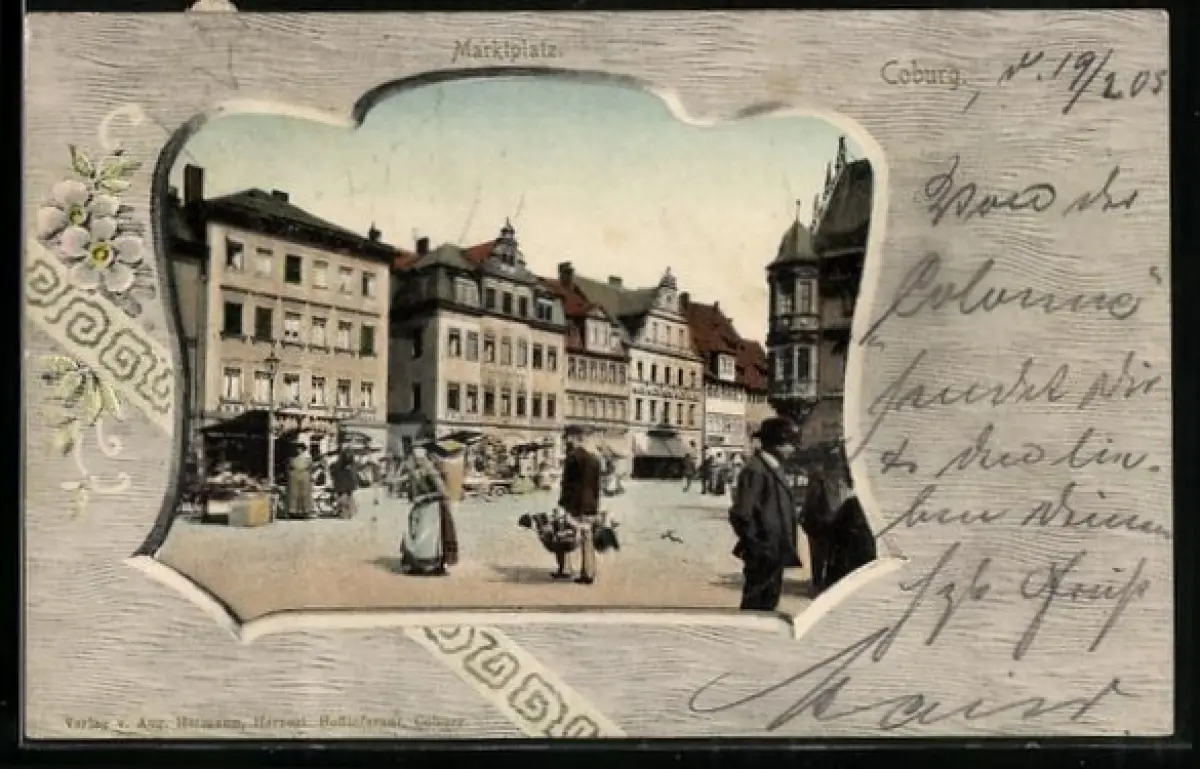 Marktplatz.
Coburg, d. 19/2 05
Von der
"Colonne"
sendet Dir
u. den lie-
ben Deinen
hzl. Gruß
Verlag v. Aug. Hofmann, Herzogl. Hoflieferant, Coburg